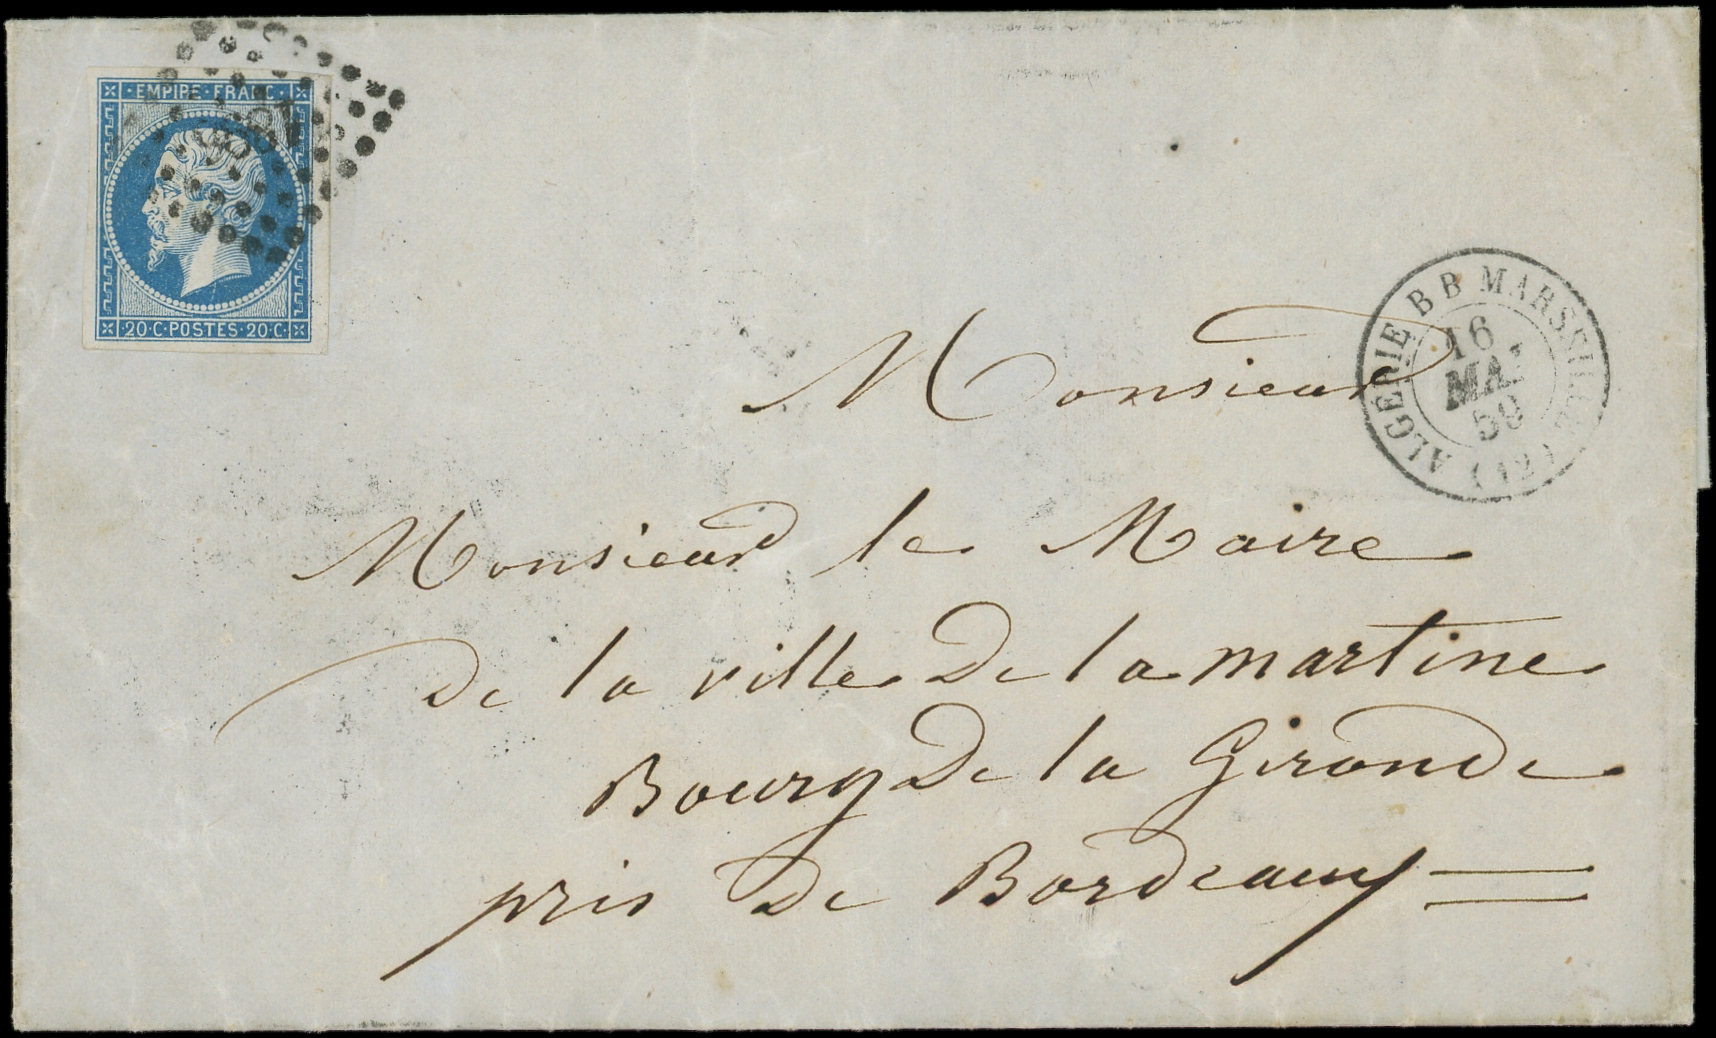 EMPIRE · FRANC ·
20 · C · POSTES · 20 · C ·
ALGÉRIE BB MARSEILLE
16
MAI
59
(12)
Monsieur
Monsieur le Maire
de la ville de la martine
Bourg de la Gironde
pris de Bordeaux